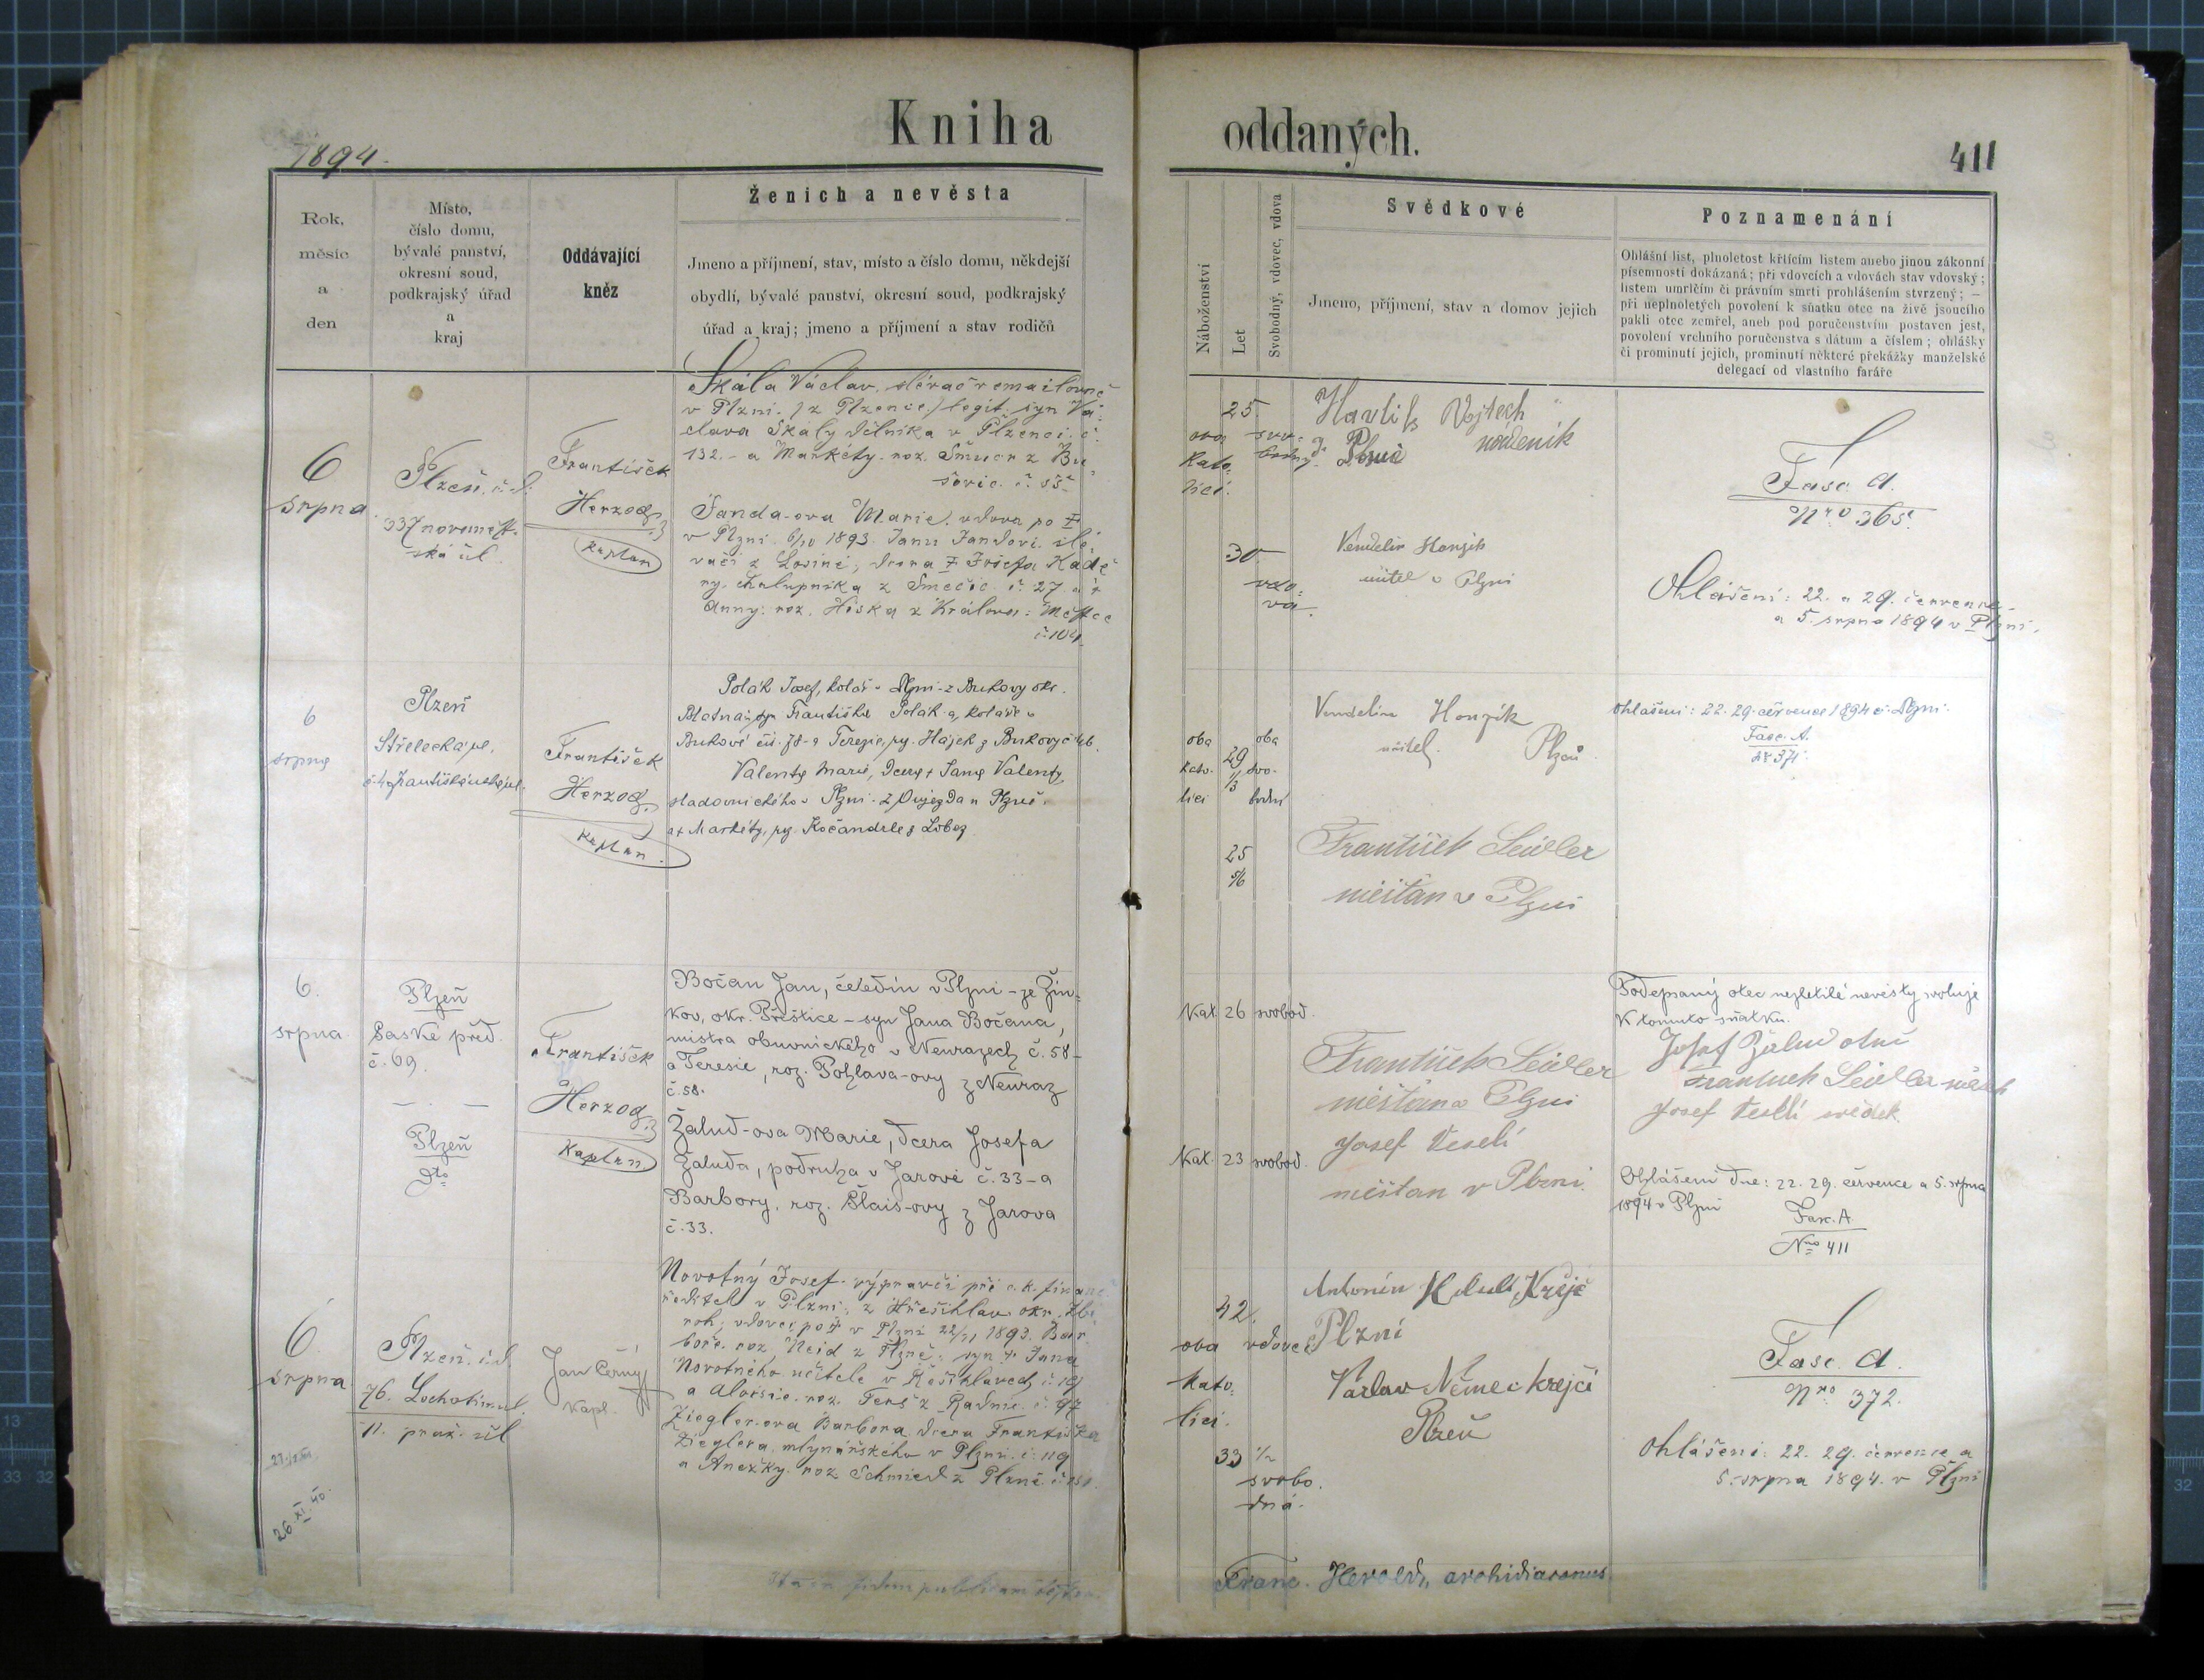 Kniha
oddaných.
1894.
411
Rok,
měsíc
a
den
Místo,
číslo domu,
bývalé panství,
okresní soud,
podkrajský úřad
a
kraj
Oddávající
kněz
Ženich a nevěsta
Jmeno a příjmení, stav, místo a číslo domu, někdejší
obydlí, bývalé panství, okresní soud, podkrajský
úřad a kraj; jmeno a příjmení a stav rodičů
Náboženství
Let
Svobodný, vdovec, vdova
Svědkové
Jmeno, příjmení, stav a domov jejich
Poznamenání
Ohlášní list, plnoletost křticím listem anebo jinou zákonní
písemností dokázaná; při vdovcích a vdovách stav vdovský;
listem umrlčím či právním smrti prohlášením stvrzený; —
při neplnoletých povolení k sňatku otce na živě jsoucího
pakli otec zemřel, aneb pod poručenstvím postaven jest,
povolení vrchního poručenstva s dátum a číslem; ohlášky
či prominutí jejich, prominutí některé překážky manželské
delegací od vlastního faráře
6
srpna
Plzeň. č. d.
337 novoměst-
ská ul.
František
Herzog
Kaplan
Skála Václav, slévač v emailovně
v Plzni. (z Plzence) legit. syn Vá-
clava Skály dělníka v Plzenci. č.
132. - a Markéty. roz. Šmucr z
Janda-ova Marie, vdova po †
v Plzni 6/10 1893. Janu Jandovi. slé-
vači z ; dcera † Josefa
ry. chalupníka z Smečic. č. 27. a †
Anny. roz. z Králova: Městce
č. 104.
25.
oba
kato-
líci.
svo-
bodný.
30
vdo-
va.
Havlik Vojtech
nádeník
Plzně
Vendelin Honzik
učitel v Plzni
Fasc. A.
Nro 365.
Ohlášení: 22. a 29. července -
a 5. srpna 1894 v Plzni.
6
srpna
Plzeň
Střelecká ul.
č. 4 a Františkánská ul.
František
Herzog
Kaplan.
Polák Josef, kolář v Plzni - z Bukovy okr.
Blatná, syn Františka Polák-a, koláře v
Bukové čís. 78 - a Terezie, roz. Hájek z Bukovy č. 46.
Valenta Marie, dcera † Jana Valenty,
sladovnického v Plzni - z Oujezda u Plzně.
a † Markéty, roz. Kočandrle z Lobez
oba
kato-
líci
29
1/3
oba
svo-
bodní
25
5/6
Vendelin Honzik
učitel. Plzeň
František Seidler
měšťan v Plzni
Ohlášení: 22. 29. července 1894 v Plzni.
Fasc. A.
No 371.
6.
srpna
Plzeň
Saské před.
č. 69.
Plzeň
dto
František
Herzog
Kaplan.
Bočan Jan, čeledín v Plzni - ze Žin-
kov, okr. Přeštice - syn Jana Bočana,
mistra obuvnického v Neurazech č. 58 -
a Teresie, roz. Pohlava-ovy z Neuraz
č. 58.
Žalud-ova Marie, dcera Josefa
Žaluda, podruha v Jarově č. 33 - a
Barbory, roz. Šlais-ovy z Jarova
č. 33.
Kat. 26 svobod.
Kat. 23 svobod.
František Seidler
měšťan v Plzni
Josef Veselí
měšťan v Plzni.
Podepsaný otec nezletilé nevěsty svoluje
k tomuto sňatku.
Josef Žalud otec
František Seidler svědek
Josef Veselí svědek
Ohlášení dne: 22. 29. července a 5. srpna
1894 v Plzni
Fasc. A
Nro 411
6.
srpna
Plzeň. č. d.
76. Lochotín. ul.
11. praž. ul.
Jan Černý
kapl.
Novotný Josef - výpravčí při c. k. finan.
ředitel. v Plzni; z Hřešihlav. okr. Zbi-
roh, vdovec po † v Plzni 22/11 1893. Bar-
boře. roz. Neid z Plzně. syn † Jana
Novotného učitele v Řešihlavech č. 19
a Aloisie. roz. z Radnic. č. 97
Ziegler-ova Barbora, dcera Františka
Zieglera, mlynářského v Plzni. č. 119
a Anežky. roz. Schmied z Plzně.
42.
oba
kato-
líci.
vdovec
33 1/2
svobo-
dná.
Antonín Krejčí
Plzni
Václav Němec krejčí
Plzeň
Fasc. A.
Nro 372.
Ohlášení: 22. 29. července a
5. srpna 1894. v Plzni
26. XI. 40.
Ita in fidem publicam
Franc. Herold, archidiaconus